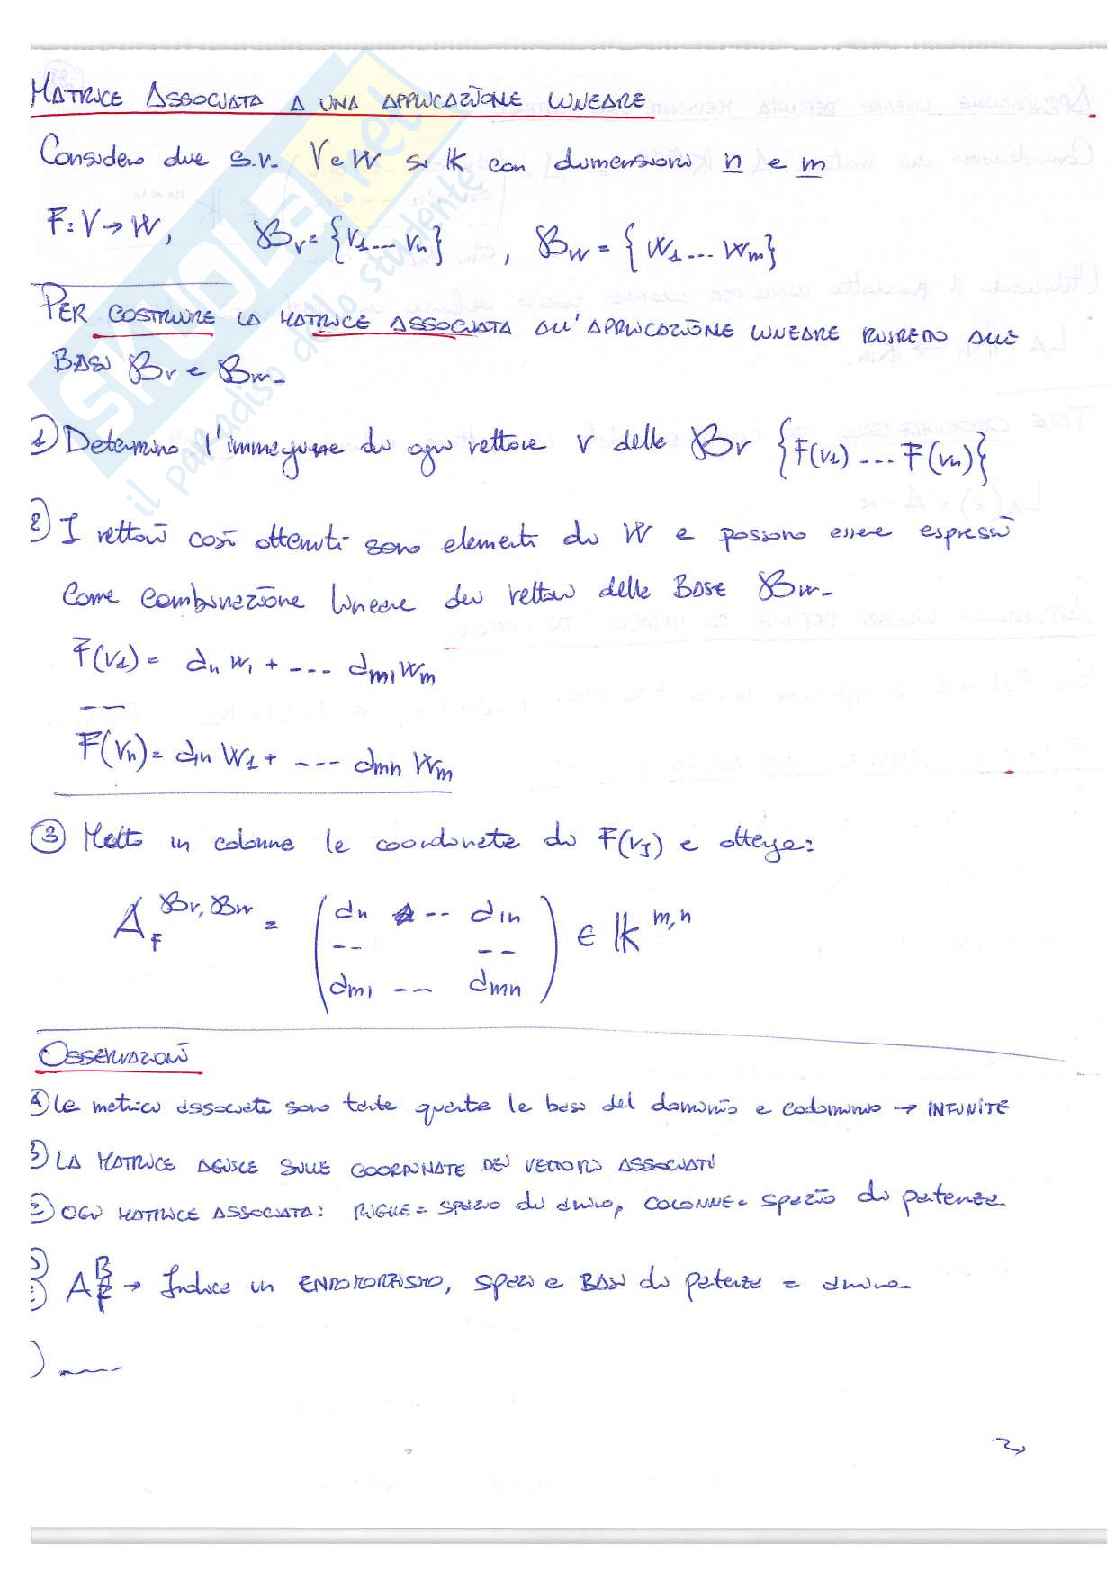 MATRICE ASSOCIATA A UNA APPLICAZIONE LINEARE
Considero due s.v. V e W su K con dimensioni n e m
F: V → W, Bv = {v1 ... vn}, Bw = {w1 ... wm}
PER COSTRUIRE LA MATRICE ASSOCIATA ALL'APPLICAZIONE LINEARE RISPETTO ALLE
BASI Bv e Bw.
1) Determino l'immagine di ogni vettore v della Bv {F(v1) ... F(vn)}
2) I vettori così ottenuti sono elementi di W e possono essere espressi
Come combinazione lineare dei vettori della BASE Bw.
F(v1) = a11 w1 + ... am1 wm
---
F(vn) = a1n w1 + ... amn wm
3) Metto in colonna le coordinate di F(vj) e ottengo:
A_F^{Bv, Bw} = (a11 ... a1n
-- --
am1 ... amn) ∈ K^{m,n}
OSSERVAZIONI
) le matrici associate sono tante quante le basi del dominio e codominio → INFINITE
) LA MATRICE AGISCE SULLE COORDINATE DEI VETTORI ASSOCIATI
) OGNI MATRICE ASSOCIATA: RIGHE = SPAZIO di arrivo, COLONNE = spazio di partenza
) A_F^B → Indica un ENDOMORFISMO, spazi e BASI di partenza = arrivo.
) ----
SKUOLA.net
il paradiso dello studente